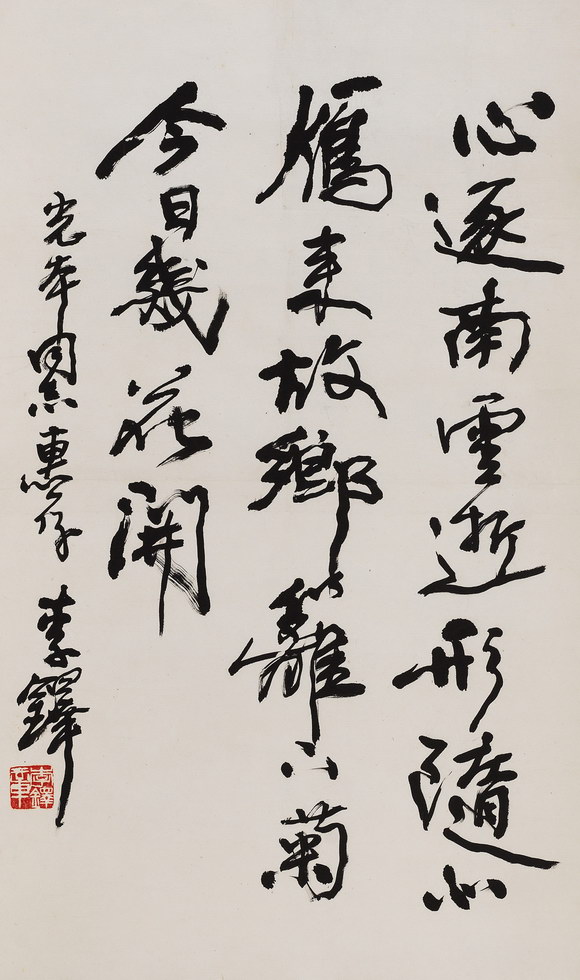 心逐南雲逝形隨北
鴈来故鄉籬下菊
今日幾花開
光本同志惠存
李鐸